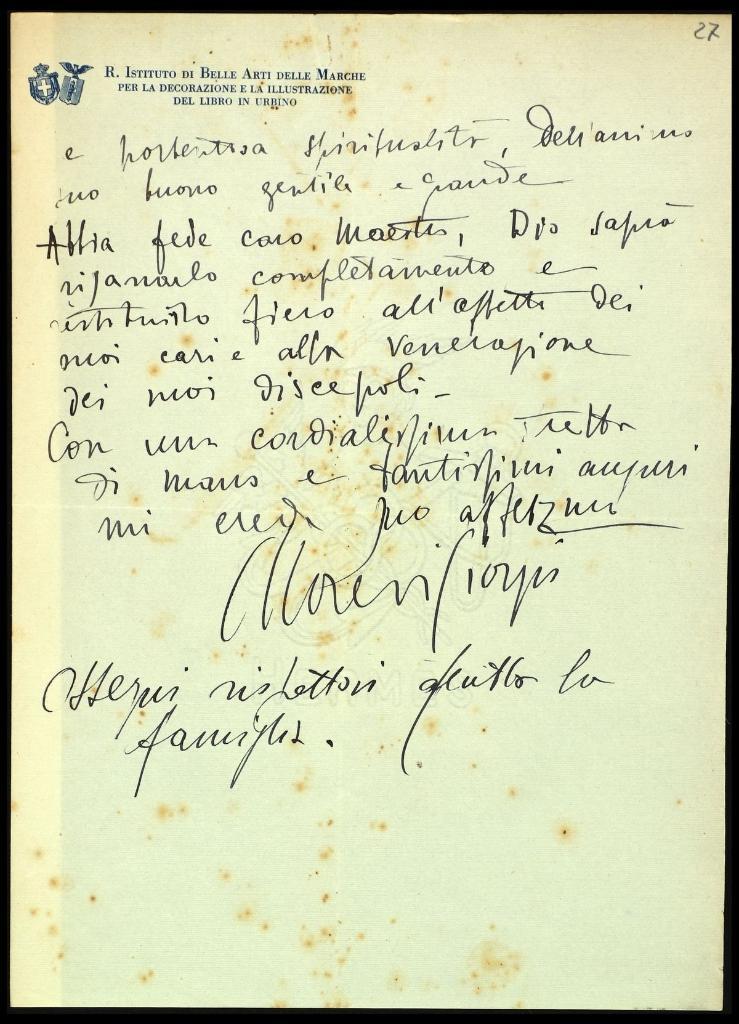 27
R. Istituto di Belle Arti delle Marche
per la decorazione e la illustrazione
del libro in Urbino
e portentosa spiritualità, dell'animo
suo buono gentile e grande
Abbia fede caro Maestro, Dio saprà
risanarlo completamente e
restituirlo fiero all'affetto dei
suoi cari e alla venerazione
dei suoi discepoli -
Con una cordialissima stretta
di mano e tantissimi auguri
mi creda suo affezmo
Giorgis
Ossequi rispettosi a tutta la
famiglia.